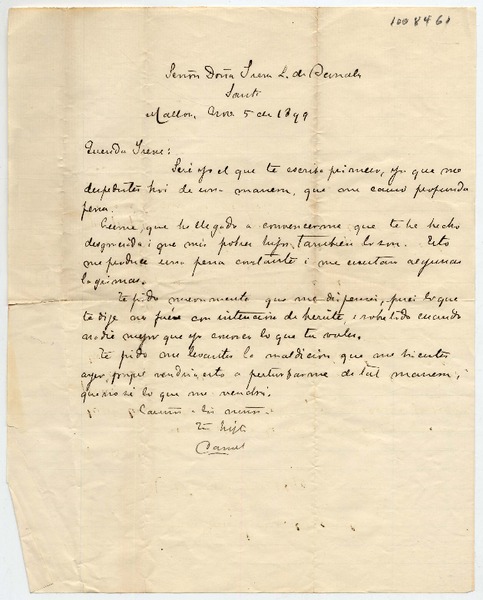 1008461
Señora Doña Irene L. de
Santi
Malloa, Nov. 5 de 1899
Querida Irene:
Seré yo el que te escriba primero, ya que me
despediste hoi de una manera, que me causó profunda
pena.
Créeme, que he llegado a convencerme que te he hecho
desgraciada i que mis pobres hijos, también lo son. Esto
me produce una pena constante i me cuestan algunas
lágrimas.
Te pido nuevamente que me dispenses, pues lo que
te dije no fué con intención de herirte i sobre todo cuando
nadie mejor que yo conoce lo que tu vales.
Te pido me levantes la maldición que me hicistes
ayer, porque vendría esto a perturbarme de tal manera,
que no sé lo que me vendrá.
Cariños a los niños
Tu